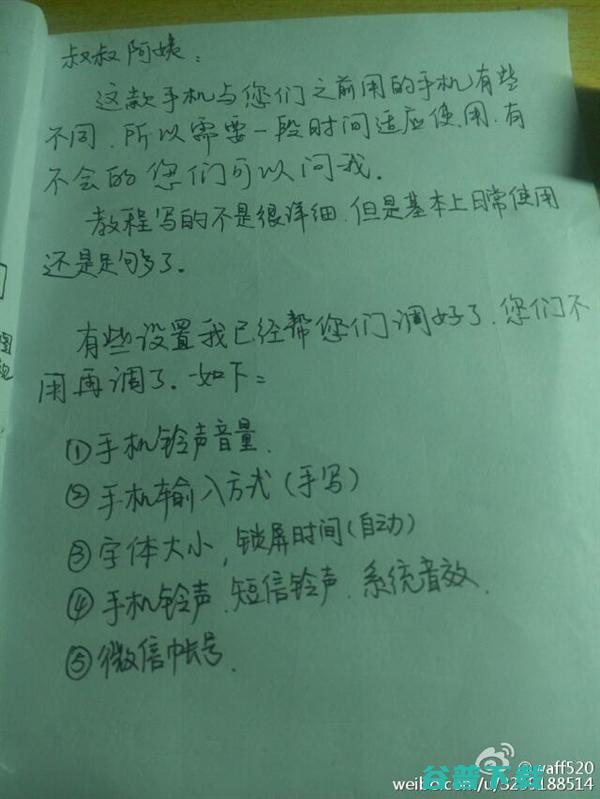 叔叔阿姨：
这款手机与您们之前用的手机有些
不同，所以需要一段时间适应使用，有
不会的您们可以问我。
教程写的不是很详细，但是基本上日常使用
还是足够了。
有些设置我已经帮您们调好了，您们不
用再调了。如下：
①手机铃声音量.
②手机输入方式（手写）
③字体大小，锁屏时间（自动）
④手机铃声.短信铃声.系统音效.
⑤微信帐号.
谷普下载